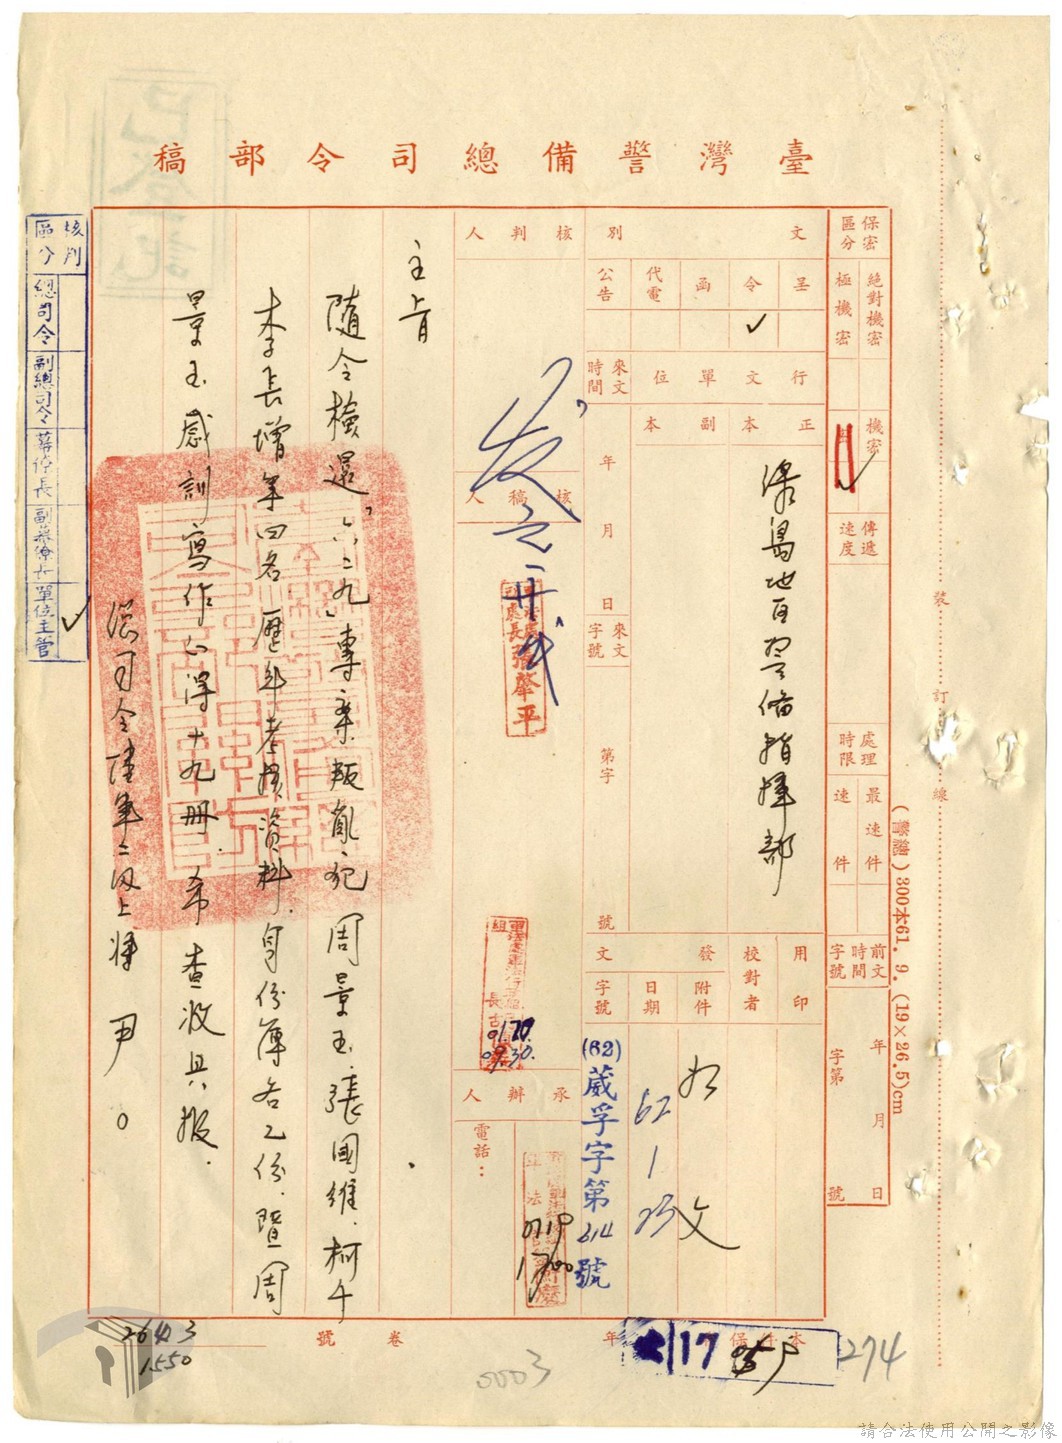 臺灣警備總司令部稿
保密區分
絕對機密
極機密
機密
密
傳遞速度
處理時限
最速件
速件
前文時間字號
年 月 日
字第 號
文別
呈
令
函
代電
公告
行文單位
正本
副本
綠島地區警備指揮部
來文時間
年 月 日
來文字號
字第 號
用印
校對者
發文
附件
日期
字號
如文
62 1 23
(62)葳孚字第614號
核判人
發
核稿人
張肇平
承辦人
電話：
0119
1700
主旨
隨令檢還「六二九」專案叛亂犯周景玉、張國維、柯千
李長增等四名歷年考核資料、身份簿各乙份、暨周
景玉感訓寫作心得十九冊．希查收具報．
總司令陸軍二級上將 尹○
核判區分
總司令
副總司令
幕僚長
副幕僚長
單位主管
裝 訂 線
(警總)300本61. 9. (19×26.5)cm
本件保 年
117
卷 號
2643
1550
0003
274
已登記
請合法使用公開之影像